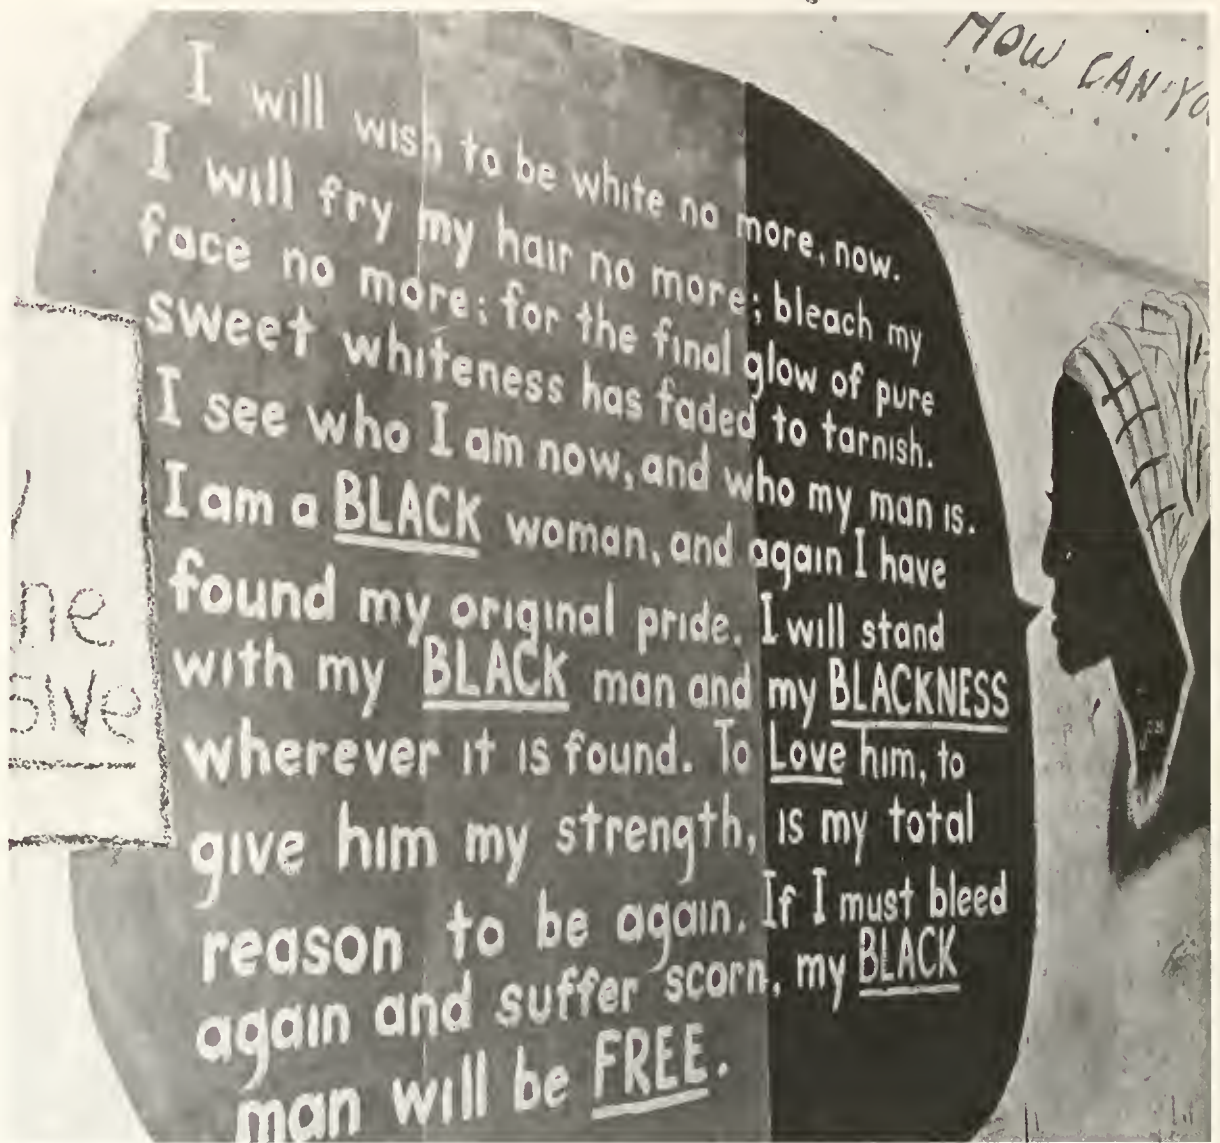 HOW CAN
I will wish to be white no more, now.
I will fry my hair no more; bleach my
face no more; for the final glow of pure
sweet whiteness has faded to tarnish.
I see who I am now, and who my man is.
I am a BLACK woman, and again I have
found my original pride. I will stand
with my BLACK man and my BLACKNESS
wherever it is found. To Love him, to
give him my strength, is my total
reason to be again. If I must bleed
again and suffer scorn, my BLACK
man will be FREE.